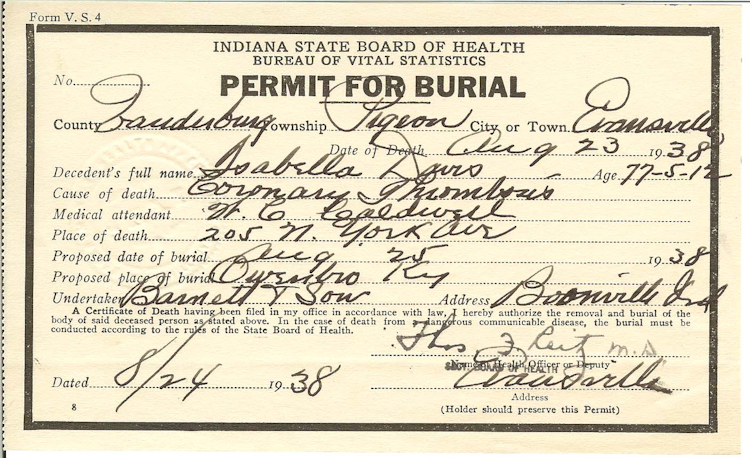 Form V. S. 4
INDIANA STATE BOARD OF HEALTH
BUREAU OF VITAL STATISTICS
No. PERMIT FOR BURIAL
County Vanderburg Township Pigeon City or Town Evansville
Date of Death Aug 23 1938
Decedent's full name Isabella Davis Age 77-5-12
Cause of death Coronary Thrombosis
Medical attendant W. C. Caldwell
Place of death 205 N. York Ave
Proposed date of burial Aug 25 1938
Proposed place of burial Owensbro Ky
Undertaker Barnett & Son Address Boonville Ind
A Certificate of Death having been filed in my office in accordance with law, I hereby authorize the removal and burial of the
body of said deceased person as stated above. In the case of death from a dangerous communicable disease, the burial must be
conducted according to the rules of the State Board of Health.
Thos F Reitz M.D.
Name of Health Officer or Deputy
SECY. BOARD OF HEALTH
Dated 8/24 1938 Evansville
Address
8 (Holder should preserve this Permit)